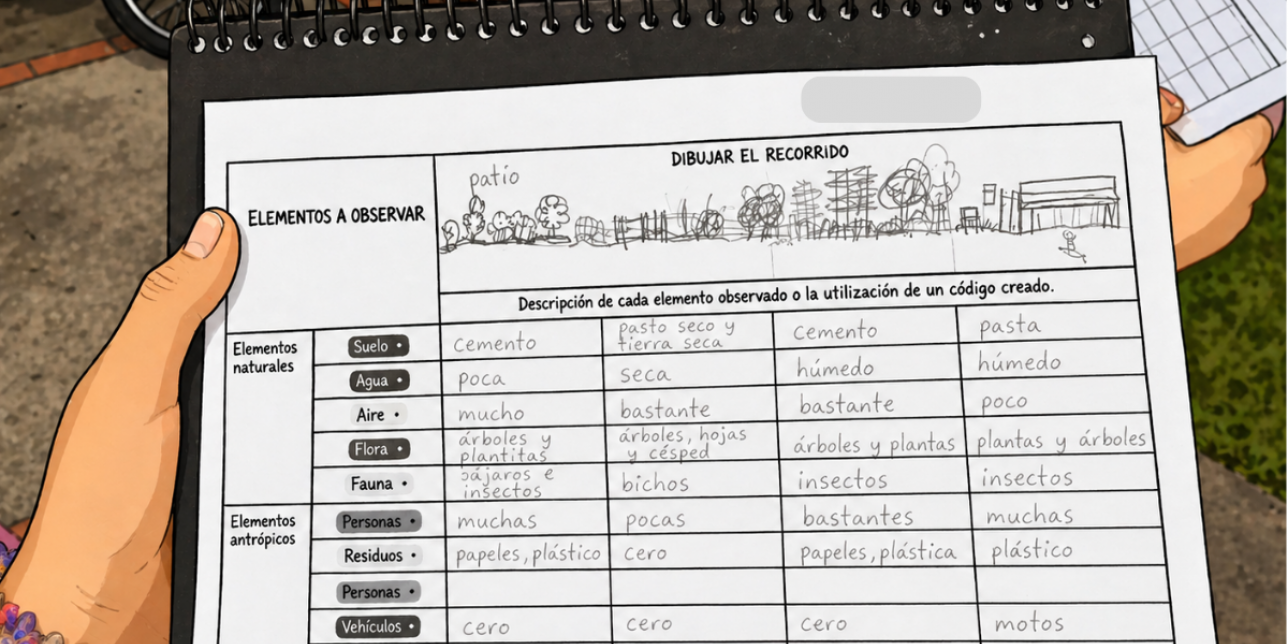 DIBUJAR EL RECORRIDO
patio
ELEMENTOS A OBSERVAR
Descripción de cada elemento observado o la utilización de un código creado.
Elementos
naturales
Suelo • cemento pasto seco y
tierra seca cemento pasta
Agua • poca seca húmedo húmedo
Aire • mucho bastante bastante poco
Flora • árboles y
plantitas árboles, hojas
y césped árboles y plantas plantas y árboles
Fauna • pájaros e
insectos bichos insectos insectos
Elementos
antrópicos
Personas • muchas pocas bastantes muchas
Residuos • papeles, plástico cero papeles, plástica plástico
Personas •
Vehículos • cero cero cero motos